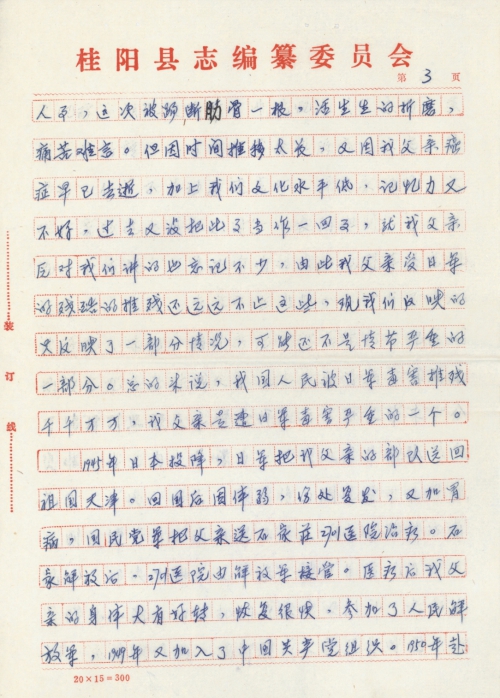 桂阳县志编纂委员会
第 3 页
人币，这次被踢断肋骨一根，活生生的折磨，
痛苦难忘。但因时间推移太长，又因我父亲癌
症早已去逝，加上我们文化水平低，记忆力又
不好，过去又没把此事当作一回事，就我父亲
反对我们讲的也忘记不少，由此我父亲受日军
的残酷的摧残还远远不止这些，现我们反映的
只反映了一部分情况，可能还不是情节严重的
一部分。总的来说，我国人民被日军毒害摧残
千千万万，我父亲是遭日军毒害严重的一个。
1945年日本投降，日军把我父亲的部队送回
祖国天津。回国后因体弱，伤处复发，又加胃
病，国民党军把父亲送石家庄270医院治疗。石
家解放后，270医院由解放军接管。医疗后我父
亲的身体大有好转，恢复很快，参加了人民解
放军，1949年又加入了中国共产党组织。1950年赴
装
订
线
20×15=300